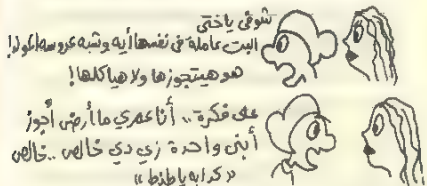 شوفى ياختى
البت عاملة فى نفسها أيه وشبه عروسه المولد!
هو هيتجوزها ولا هياكلها!
على فكرة.. أنا عمري ما أرضى أجوز
أبنى واحدة زي دي خالص.. خالص
«كدابه يا طنط»